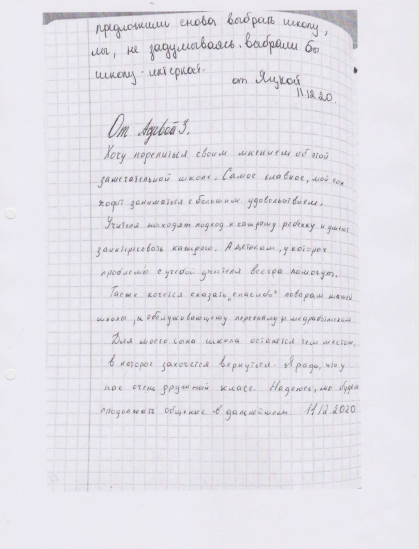 предложили снова выбрать школу,
мы, не задумываясь, выбрали бы
школу-интернат.
от Яцкой
11.12.20.
От Адвой З.
Хочу поделиться своим мнением об этой
замечательной школе. Самое главное, мой сын
ходит заниматься с большим удовольствием.
Учителя находят подход к каждому ребенку и умеют
заинтересовать каждого. А деткам, у которых
проблемы с учебой учителя всегда помогут.
Также хочется сказать "спасибо" поварам нашей
школы, и обслуживающему персоналу и медработникам.
Для моего сына школа останется тем местом,
в которое захочется вернуться. Я рада, что у
нас очень дружный класс. Надеюсь, мы будем
продолжать общение в дальнейшем 11.12.2020